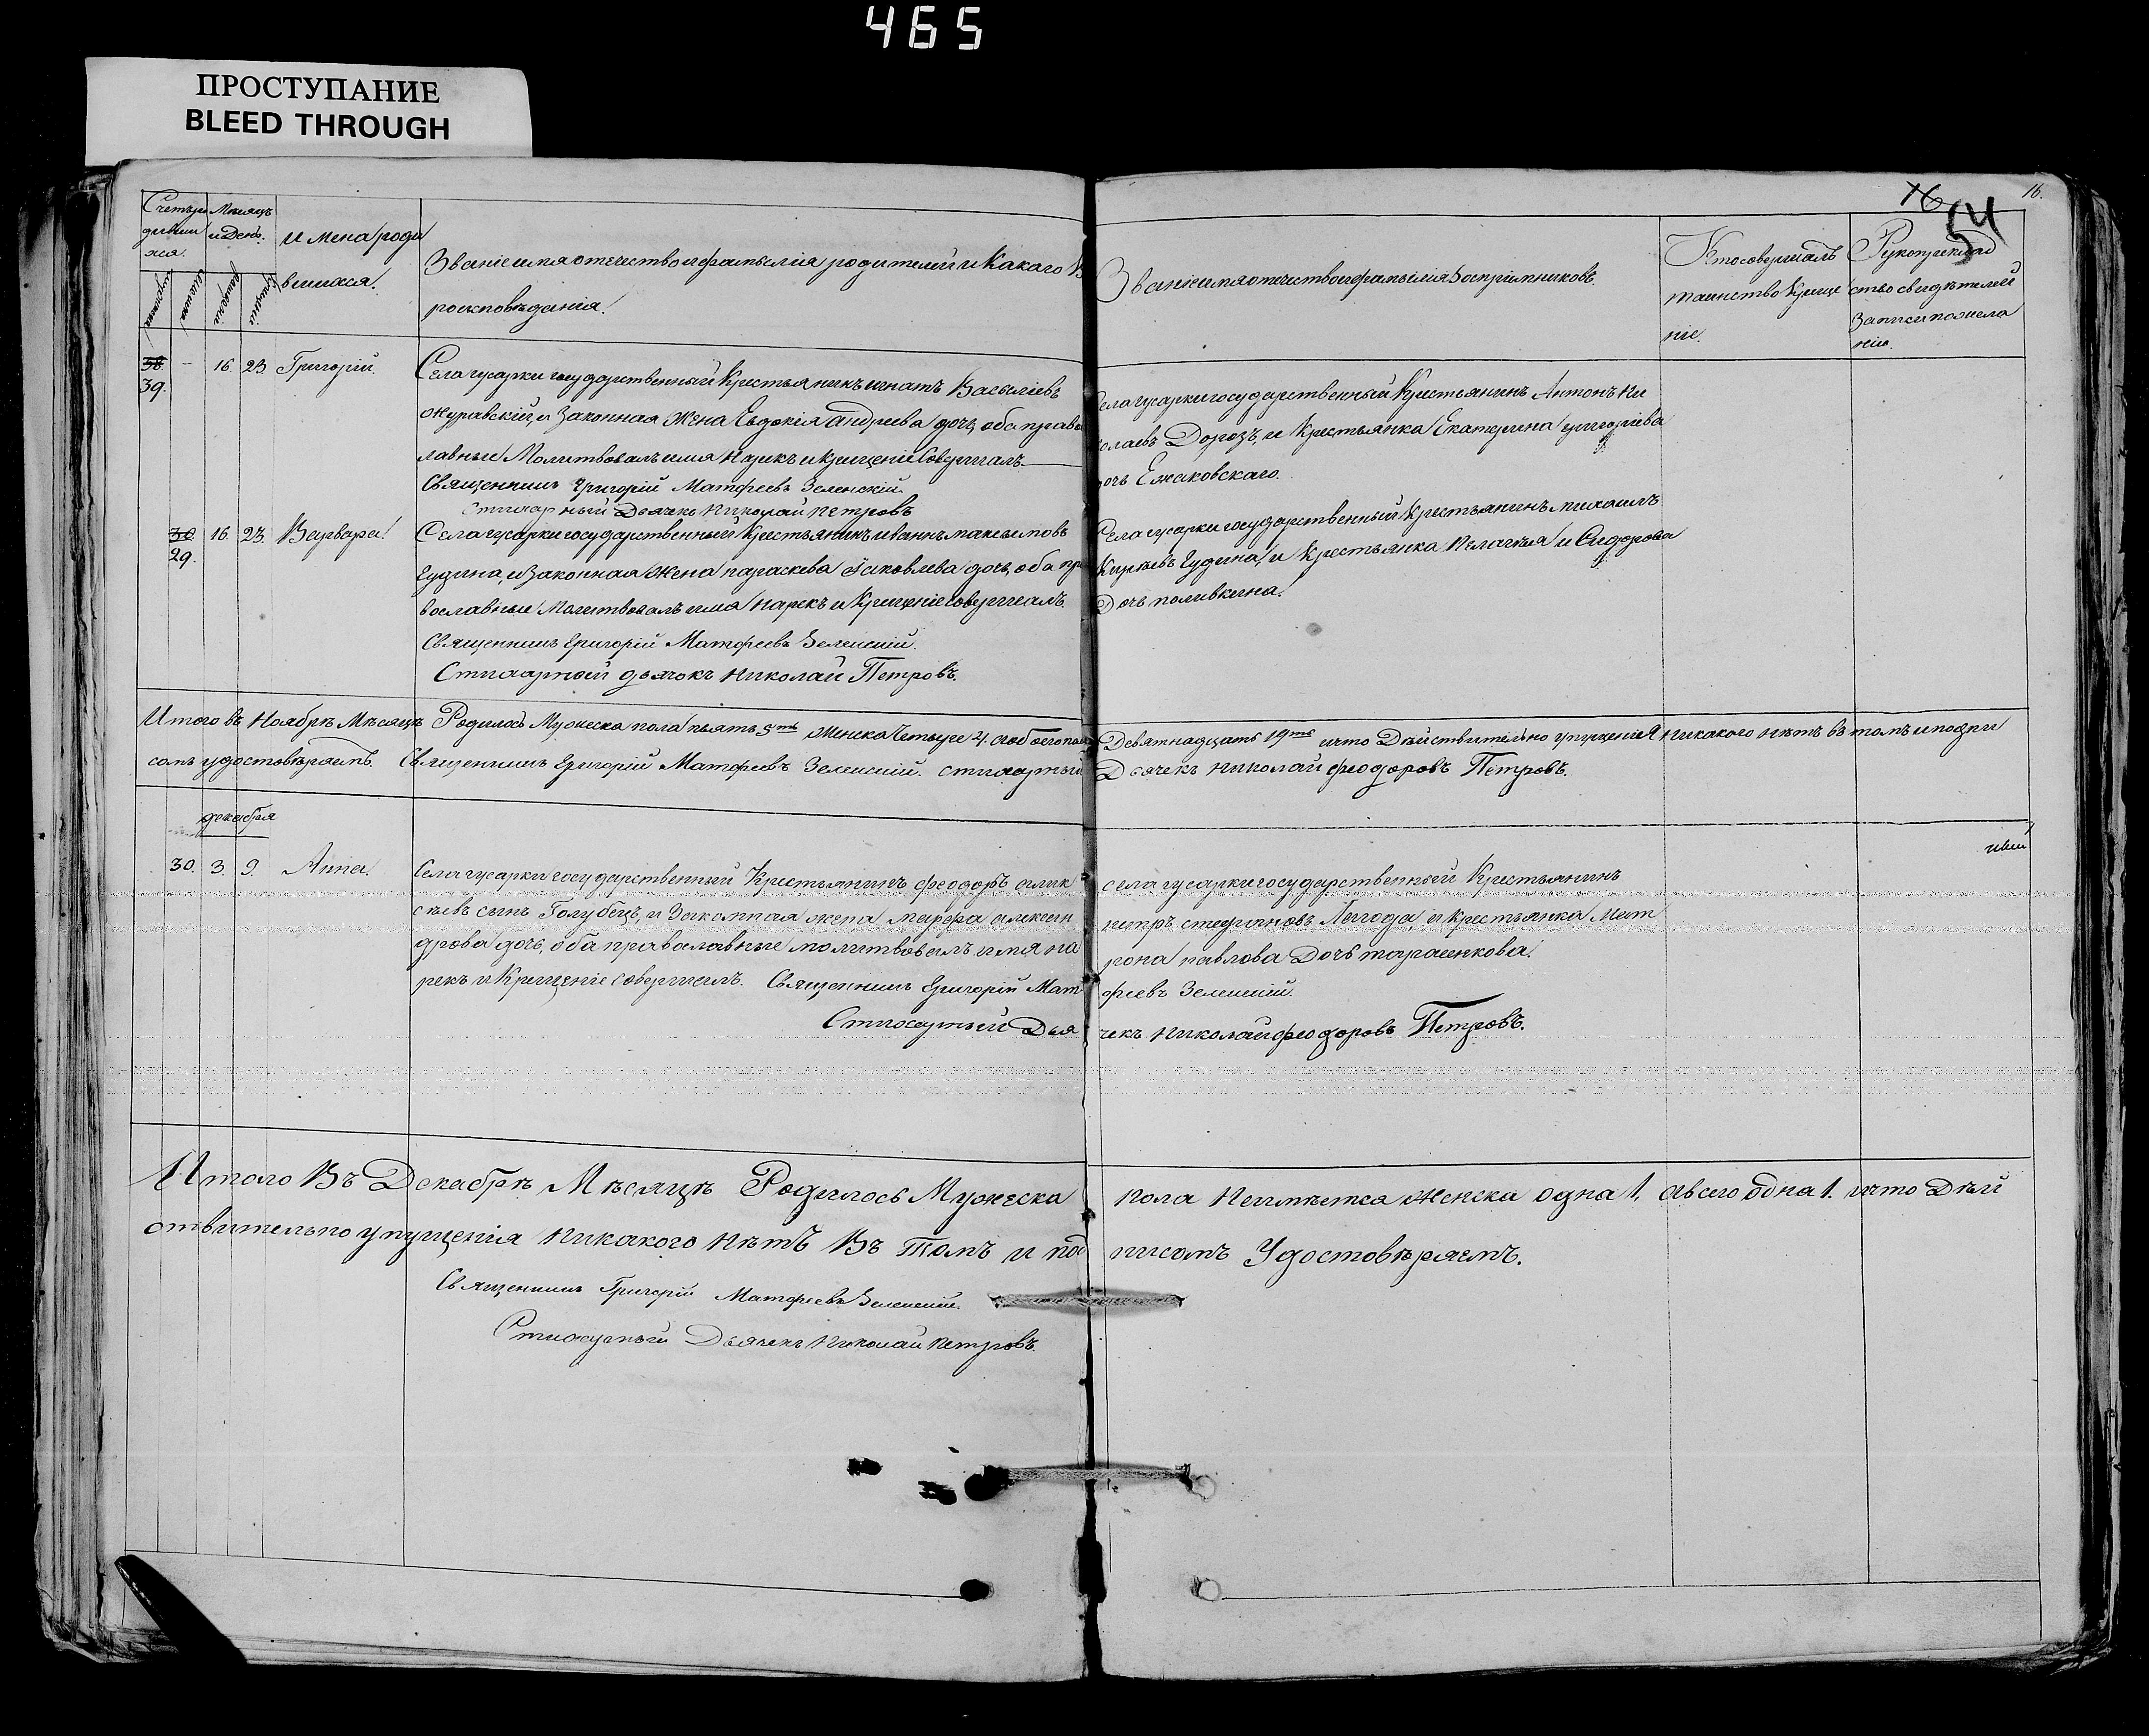 465
ПРОСТУПАНИЕ
BLEED THROUGH
16 54 16.
Счетъ ро
дивши
хся.
Мѣсяцъ
и День.
имена роди
вшихся.
Званіе имя отчество и фамылія родителей и Какаго В
роисповѣданія.
Званіе имя отчество и фамылія Воспріѣмниковъ.
Кто совершалъ
таинство Креще
ніе.
Рукоприклад
ство свидѣтелей
Записи по жела
нію.
38. 39. – 16. 23. Григорій.
Села гусарки государственный Крестьянинъ игнатъ Васыліевъ
журавскій, и Законная Жена Евдокія андреева дочь, оба право
лавные Молитвовалъ имя Нарекъ и крищеніе Совершалъ
Священникъ Григорій Матфеевъ Зеленскій
Стихарный Дьячекъ Николай Петровъ
села гусарки государственный Крестьянинъ Антонъ Ни
олаевъ Дорозъ, и Крестьянка Екатерина григоріева
очь Ежаковскаго.
30. 29. 16. 23. Варвара.
Села гусарки государственный Крестьянинъ иванъ максымовъ
Гудина, и Законная Жена параскева Іаковлева дочь, оба пра
вославные Молитвовалъ имя нарекъ и Крищеніе совершалъ.
Священникъ Григорій Матфеевъ Зеленскій.
Стихарный дьячокъ Николай Петровъ.
Села гусарки государственный Крестьянинъ михаилъ
Кирѣевъ Гудина, и Крестьянка Пелагия и Сидорова
Дочь поливкина.
Итого въ Ноябрѣ Мѣсяцѣ Родилось Мужеска пола пять 5ть Женска Четыре 4. а обоего пола Девятнадцать 19ть и что Дѣйствительно упущенія никакого нѣтъ въ томъ и подпи
сомъ удостовѣряемъ. Священникъ Григорій Матфеевъ Зеленскій. стихарный Дьячекъ Николай феодоровъ Петровъ.
декабря
30. 3. 9. Анна.
Села гусарки государственный Крестьянинъ феодоръ алик
сѣевъ сынъ Голубецъ, и Законная жена марфа алексан
дрова дочь, оба праваславные молитвовалъ имя на
рекъ и Крищеніе совершалъ. Священникъ Григорій Мат
фѣевъ Зеленскій.
Стихарный Дья
чекъ Николай феодоровъ Петровъ.
села гусарки государственный Крестьянинъ
петръ стефановъ Лагода, и крестьянка Мат
рона павлова Дочь тарасенкова.
Итого Въ Декабрѣ Мѣсяцѣ Родилось Мужеска пола Неимѣется Женска одна 1, авсего одна 1. и что Дѣй
ствительно упущенія никакого нѣтъ Въ Томъ и под писомъ Удостовѣряемъ.
Священникъ Григорій Матфеевъ Зеленскій.
Стихарный Дьячекъ Николай Петровъ.